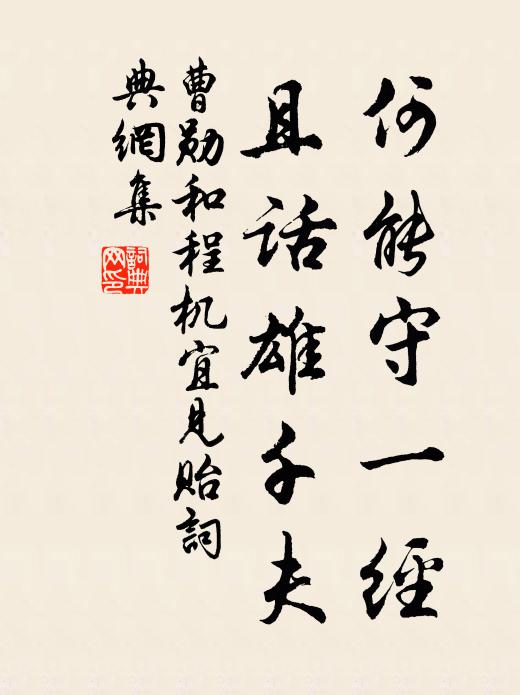 何能守一經
且话雄千夫
曹勋和程机宜見贻詞
典網集
詞典
网印